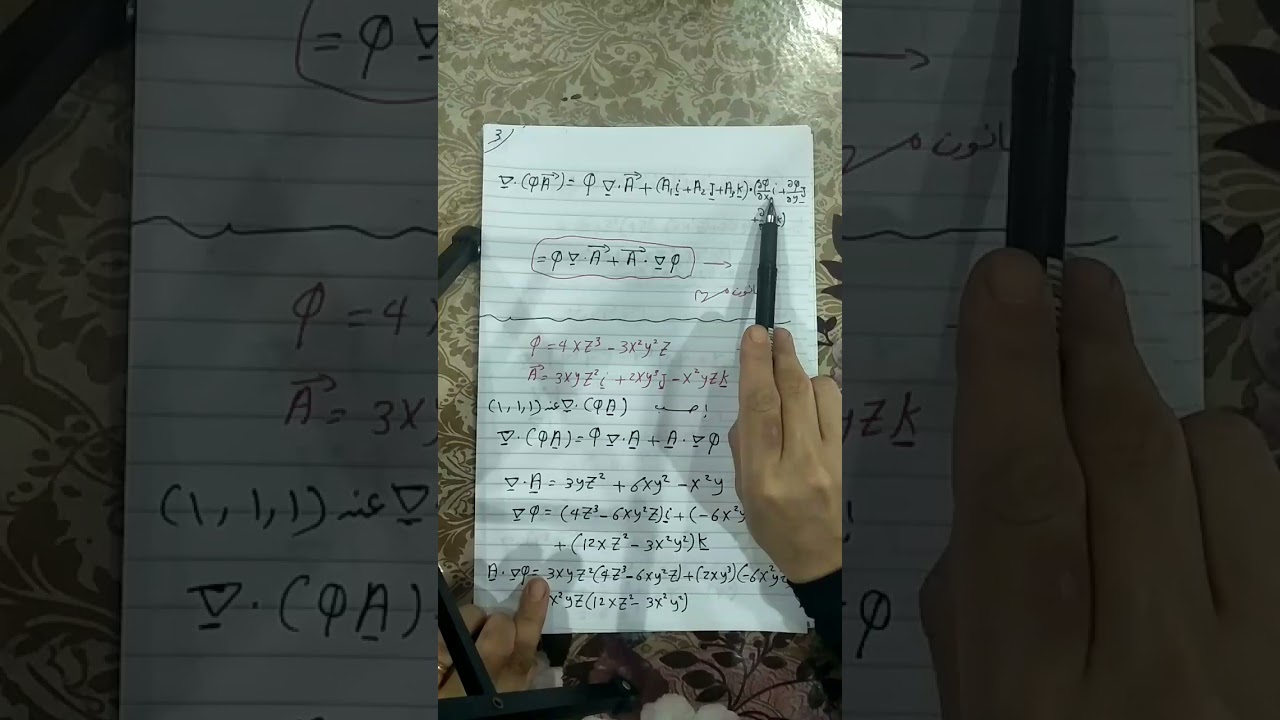 3)
∇·(φA⃗) = φ ∇·A⃗ + (A₁i + A₂j + A₃k)·(∂φ/∂x i + ∂φ/∂y j
+ k)
= φ ∇·A⃗ + A⃗·∇φ →
φ = 4xz³ - 3x²y²z
A⃗ = 3xyz²i + 2xy³j - x²yzk
(1,1,1) عند ∇·(φA)
∇·(φA) = φ ∇·A + A·∇φ
∇·A = 3yz² + 6xy² - x²y
∇φ = (4z³ - 6xy²z)i + (-6x²y
+ (12xz² - 3x²y²)k
A·∇φ = 3xyz²(4z³ - 6xy²z) + (2xy³)(-6x²yz
x²yz(12xz² - 3x²y²)